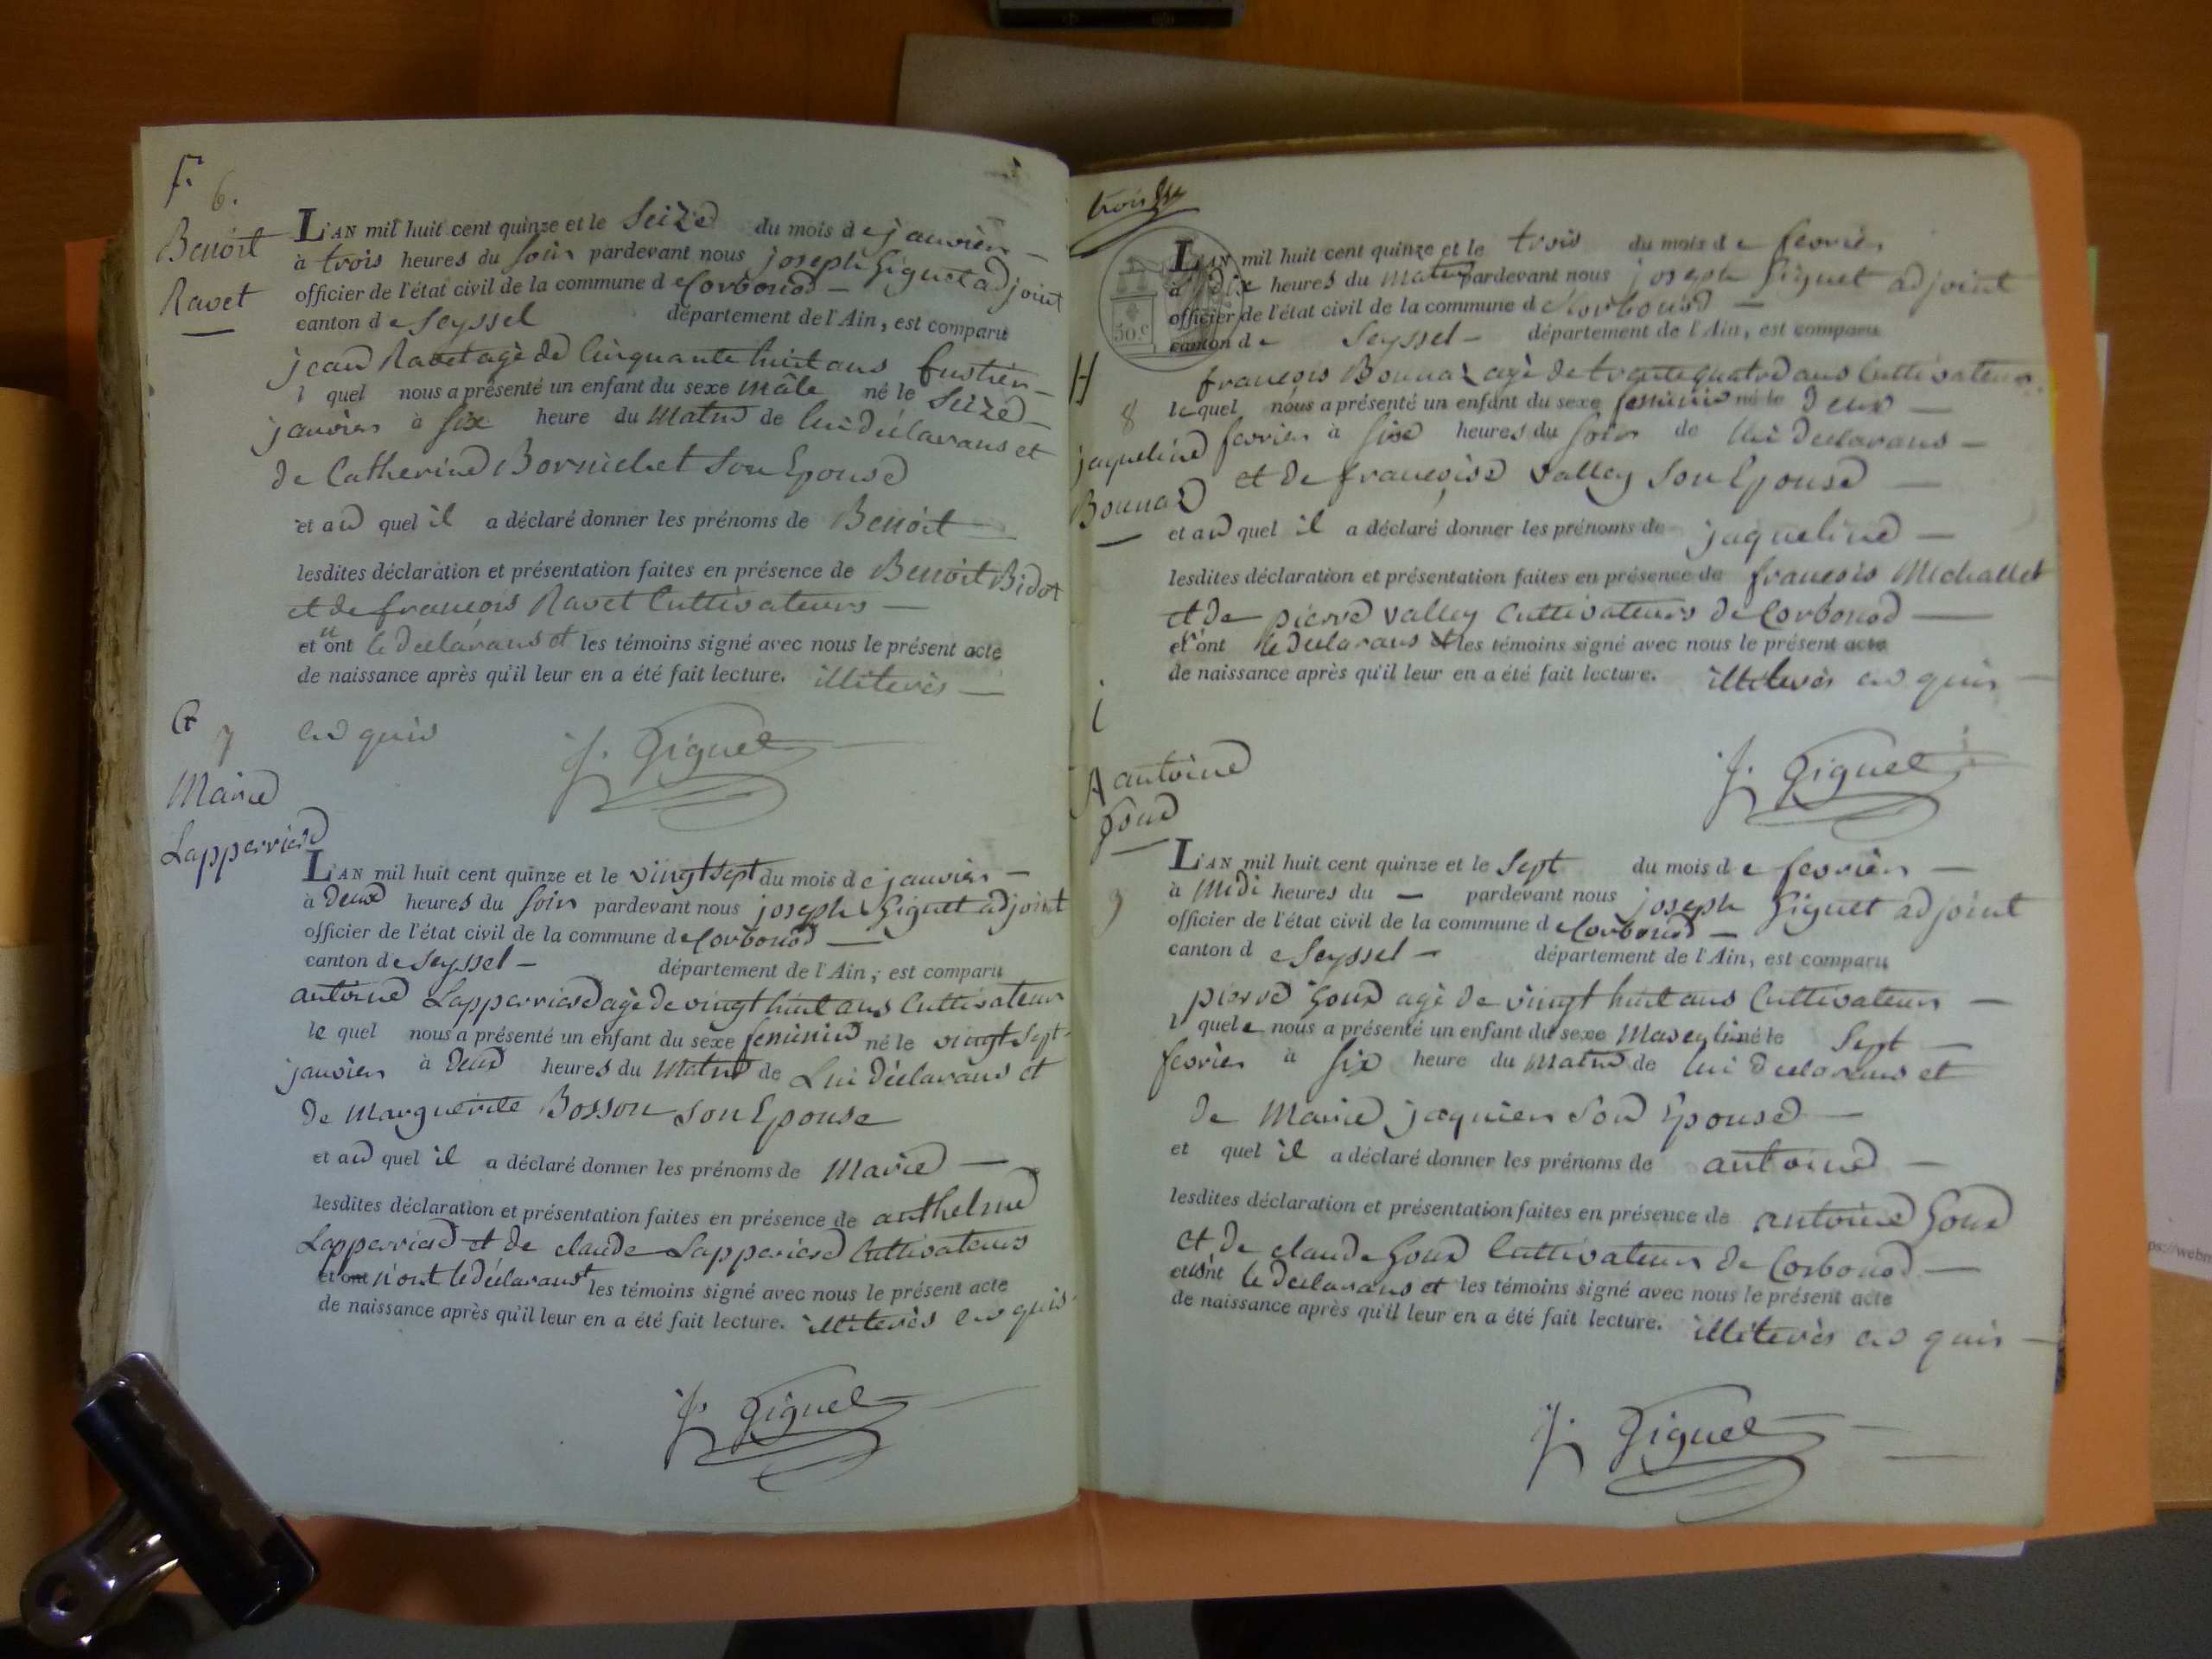 F.
6.
Benoit
Ravet
L'AN mil huit cent quinze et le Seize du mois de janvier
à trois heures du soir pardevant nous joseph Giguet adjoint
officier de l'état civil de la commune de Corbonod
canton de Seyssel département de l'Ain, est comparu
jean Ravet agè de Cinquante huit ans fustier
l quel nous a présenté un enfant du sexe mâle né le Seize
janvier à six heure du matin de lui déclarans et
de Catherine Bornichet Son Epouse
et au quel il a déclaré donner les prénoms de Benoit
lesdites déclaration et présentation faites en présence de Benoit Bidot
et de françois Ravet Cultivateurs
et n'ont le declarans et les témoins signé avec nous le présent acte
de naissance après qu'il leur en a été fait lecture. illiterès
en quis
J. Giguet
G
7
Marie
Lapperriere
L'AN mil huit cent quinze et le vingt sept du mois de janvier
à deux heures du soir pardevant nous joseph Giguet adjoint
officier de l'état civil de la commune de Corbonod
canton de Seyssel département de l'Ain, est comparu
antoine Lapperriere agè de vingt huit ans Cultivateur
le quel nous a présenté un enfant du sexe feminin né le vingt Sept
janvier à deux heures du Matin de Lui déclarans et
de Marguerite Bosson son Epouse
et au quel il a déclaré donner les prénoms de Marie
lesdites déclaration et présentation faites en présence de anthelme
Lapperriere et de claude Lapperiere Cultivateurs
et ont n'ont le déclarans et les témoins signé avec nous le présent acte
de naissance après qu'il leur en a été fait lecture. illiterès en quis
J. Giguet
trois
50.c
L'AN mil huit cent quinze et le trois du mois de fevrier
à dix heures du matin pardevant nous joseph Giguet adjoint
officier de l'état civil de la commune de Corbonod
canton de Seyssel département de l'Ain, est comparu
H
8
jaqueline
Bonnaz
françois Bonnaz agè de trente quatre ans Cultivateur
le quel nous a présenté un enfant du sexe feminin né le deux
fevrier à six heures du soir de lui declarans
et de françoise Valley Son Epouse
et au quel il a déclaré donner les prénoms de jaqueline
lesdites déclaration et présentation faites en présence de françois Michallet
et de pierre Valley Cultivateurs de Corbonod
et n'ont le declarans et les témoins signé avec nous le présent acte
de naissance après qu'il leur en a été fait lecture. illiterès en quis
J. Giguet
i
antoine
Goux
9
L'AN mil huit cent quinze et le Sept du mois de fevrier
à Midi heures du pardevant nous joseph Giguet adjoint
officier de l'état civil de la commune de Corbonod
canton de Seyssel département de l'Ain, est comparu
pierre Goux agè de vingt huit ans Cultivateur
l quel e nous a présenté un enfant du sexe Masculin né le Sept
fevrier à six heure du Matin de lui declarans et
de Marie jaquier Son Epouse
et quel il a déclaré donner les prénoms de antoine
lesdites déclaration et présentation faites en présence de antoine Goux
et de claude Goux Cultivateur de Corbonod
et n'ont le declarans et les témoins signé avec nous le présent acte
de naissance après qu'il leur en a été fait lecture. illiterès en quis
J. Giguet